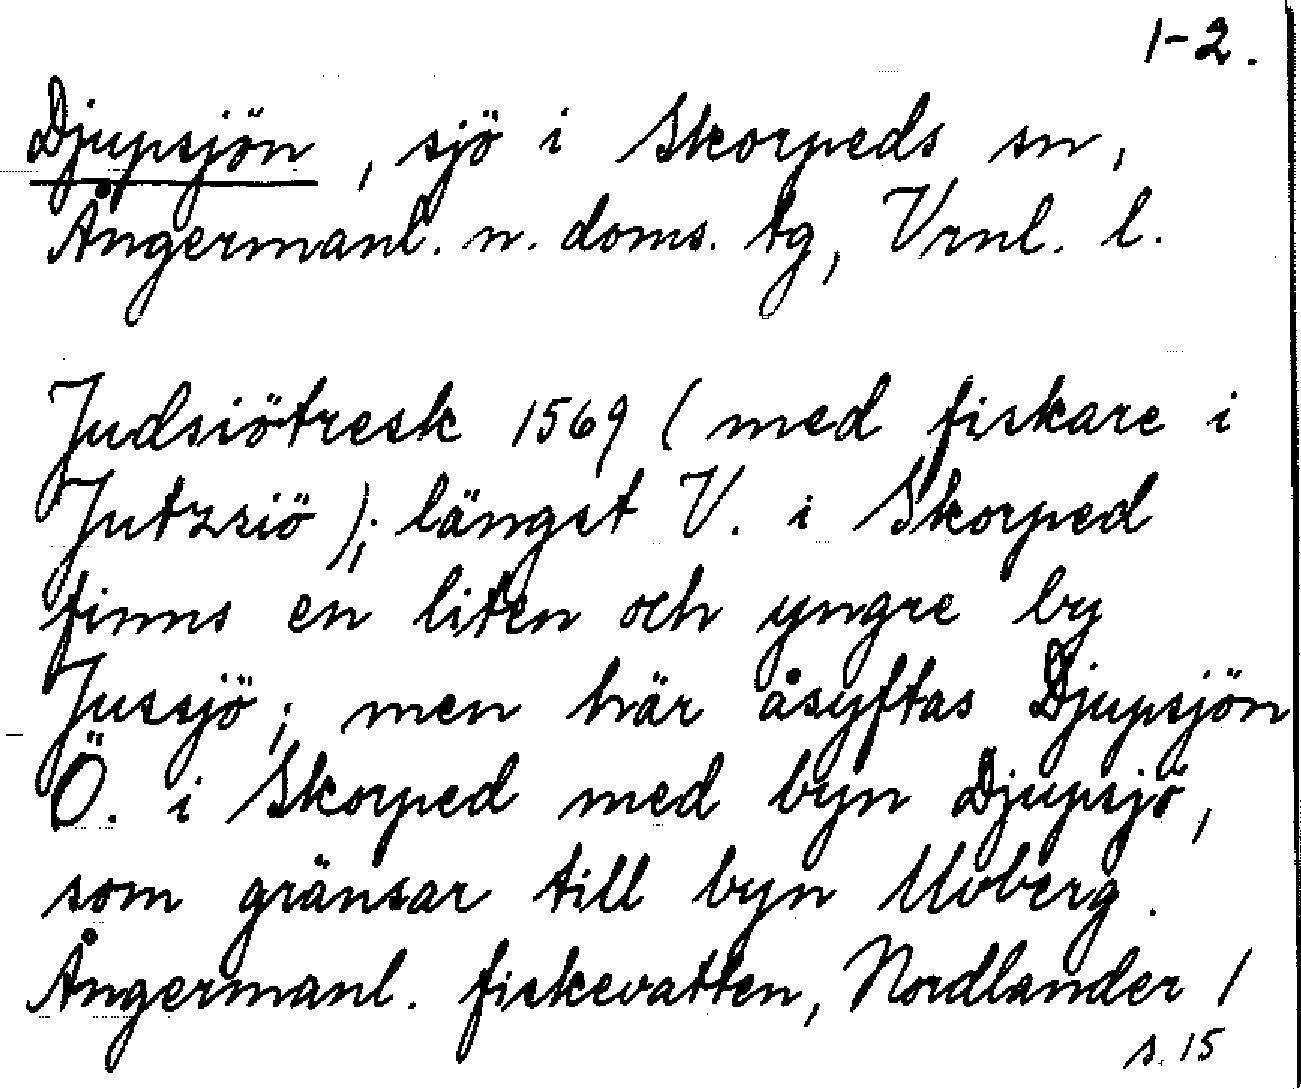 1-2.
Djupsjön, sjö i Skorpeds sn,
Ångermanl. n. doms. tg, Vrnl. l.
Judsiötresk 1569 (med fiskare i
Jutzsiö); längst V. i Skorped
finns en liten och yngre by
Jussjö; men här åsyftas Djupsjön
Ö. i Skorped med byn Djupsjö,
som gränsar till byn Moberg.
Ångermanl. fiskevatten, Nordlander 1
s. 15